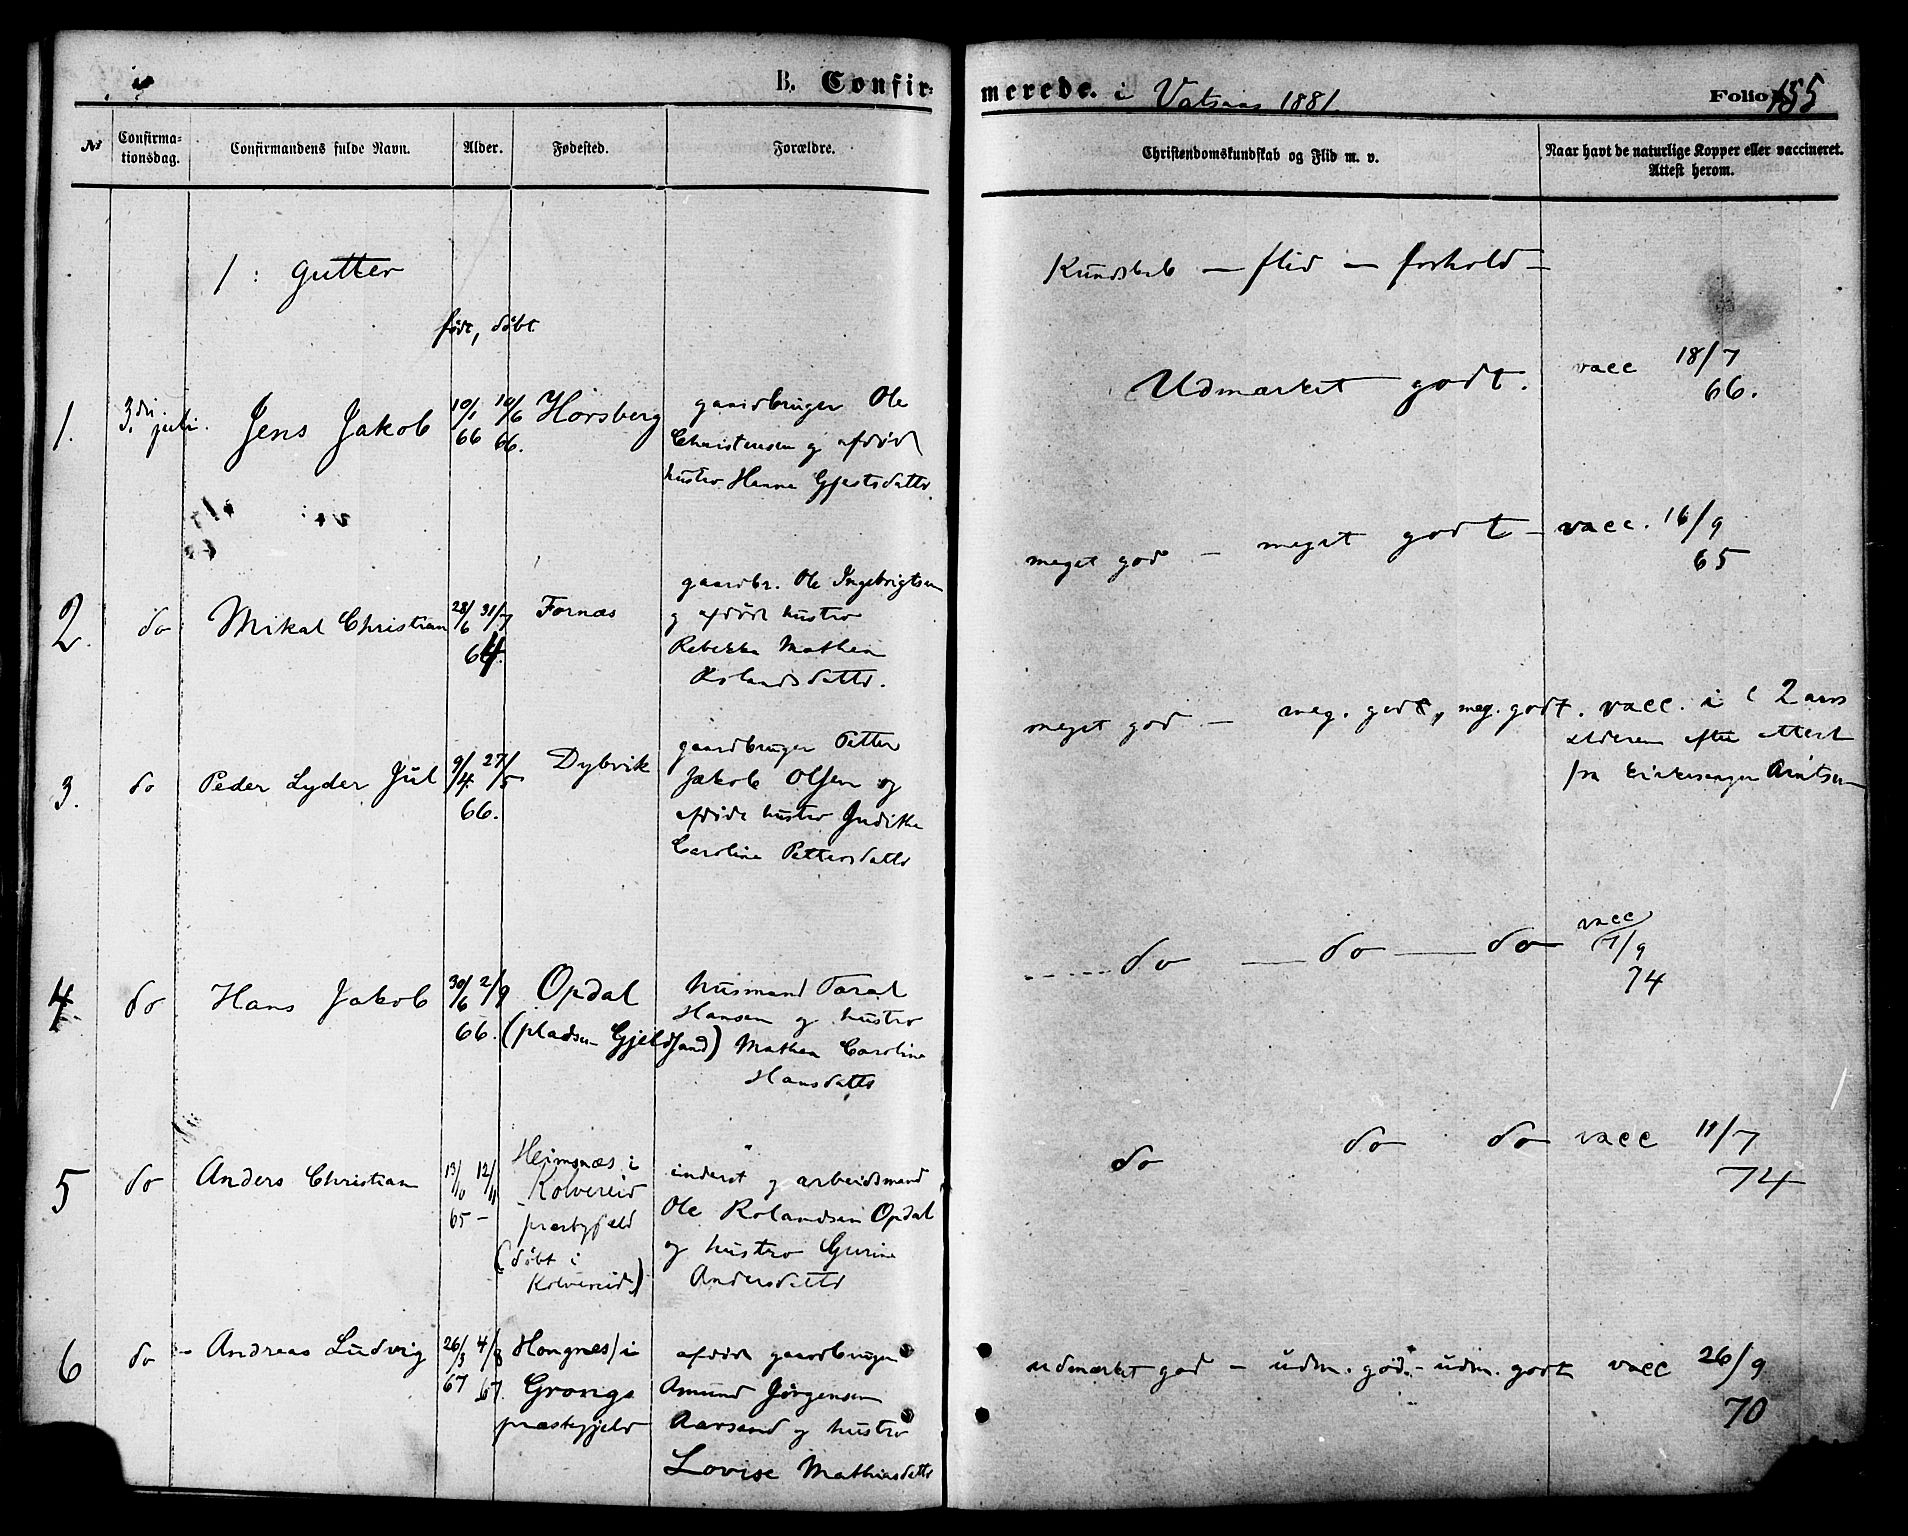 B. Confirmerede. i Vatsaas 1881. Folio 155
No Confirmationsdag. Confirmandens fulde Navn. Alder. Fødested. Forældre. Christendomskundskab og Flid m. v. Naar havt de naturlige Kopper eller vaccineret. Attest herom.
1 : gutter
Kundskab — flid — forhold —
født, døbt
1. 3die juli. Jens Jakob 10/1 66 10/6 66. Horsberg
gaardbruger Ole
Christensen og afdøde
hustro Hanna Gjertsdattr.
Udmærket godt. vacc 18/7 66.
2. do Mikal Christian 28/6 31/7 64. Fornæs
gaardbr. Ole Ingebrigtsen
og afdøde hustro
Rebekka Mathea
Rolandsdattr.
meget god — meget godt — vacc. 16/9 65
3. do Peder Lyder Jul 9/4 27/5 66. Dybvik
gaardbruger Petter
Jakob Olsen og
afdøde hustro Indikka
Caroline Pettersdattr
meget god — meg. godt, meg. godt. vacc. i 2 aars
alderen efter attest
fra kirkesanger Arntsen
4. do Hans Jakob 30/6 2/9 66. Opdal
(pladsen Gjeldsand)
husmand Taral
Hansen og hustro
Mathea Caroline
Hansdattr
do — do — do vacc 7/9 74
5 do Anders Christian 13/10 12/11 65 -
Heimsnæs i
Kolvereid
præstegjeld
(døbt i
Kolvereid)
inderst og arbeidsmand
Ole Rolandsen Opdal
og hustro Gurine
Andersdattr
do do do vacc 11/7 74
6 do - Andreas Ludvig 26/3 67 4/8 67.
Hongnes i
Grongs
præstegjeld
afdøde gaardbruger
Amund Jørgensen
Aarsand og hustro
Lovise Mathiasdattr
udmærket god — udm. god. - udm. godt vacc 26/9 70